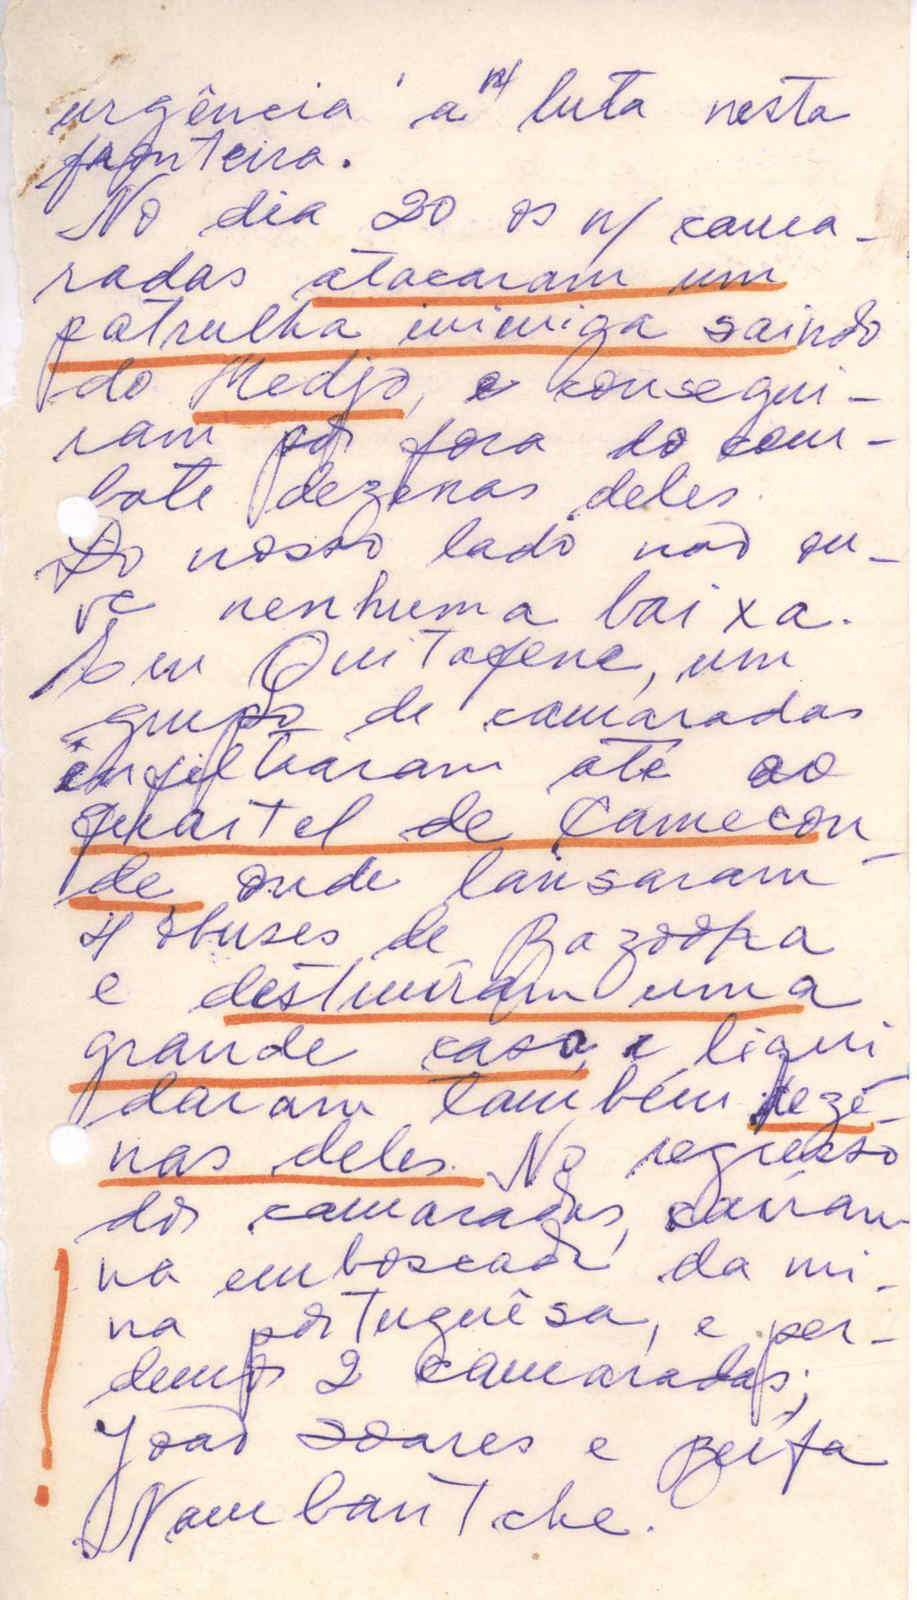 urgência a n/ luta nesta
fronteira.
No dia 20 os n/ cama-
radas atacaram um
patrulha inimiga saindo
do Medjo, e consegui-
ram pôr fora do com-
bate dezenas deles.
Do nosso lado não ou-
ve nenhuma baixa.
Em Quitafene, um
grupo de camaradas
infiltraram até ao
quartel de Camecon-
de, onde lansaram
4 obuses de Bazooka
e destruíram uma
grande casa, e liqui
daram também dezê-
nas deles. No regresso
dos camaradas, caíram
na emboscada da mi-
na portuguêsa, e per-
demos 2 camaradas;
João Soares e
Nambantche.